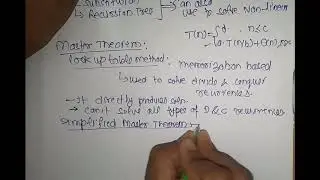 Substitution
→ Recursion Tree
can also
use to solve Non-linear
T(n) = { d . n≤c
a.T(n/b)+f(n), n>c
Master Theorem:-
look up table method : memorization based
used to solve divide & conquer
recurrences.
→ It directly produces soln.
→ can't solve all types of D & C recurrences
Simplified Master Theorem :-